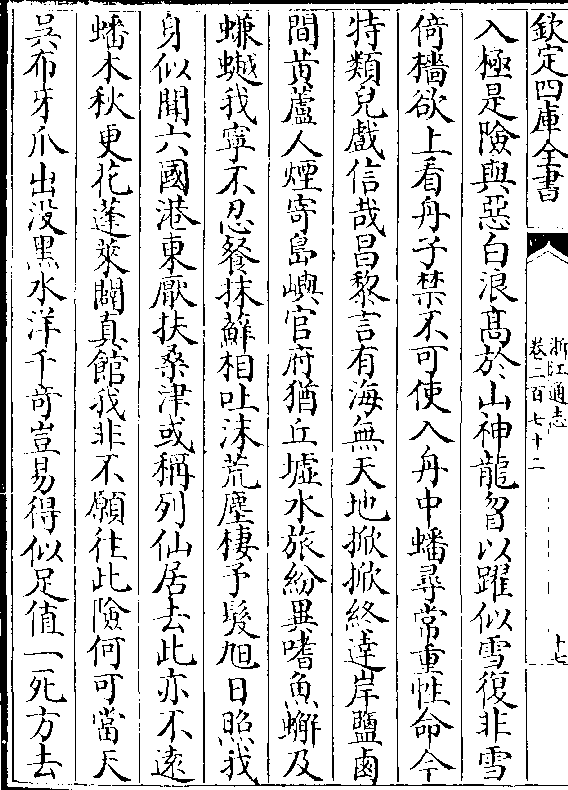 欽定四庫全書
浙江通志
卷二百七十二
十七
入極是險與惡白浪髙於山神龍㫚以躍似雪復非雪
倚檣欲上看舟子禁不可使入舟中蟠尋常重性命今
特類兒戲信哉昌黎言有海無天地掀掀終達岸鹽鹵
間黄蘆人煙寄島嶼官府猶丘墟水旅紛異嗜魚蠏及
蠊𧑅我寧不忍餐抹蘚相吐沫荒塵棲予髮旭日照我
身似聞六國港東厭扶桑津或稱列仙居去此亦不遠
蟠木秋更花蓬萊闢真館我非不願往此險何可當天
吳布牙爪出没黒水洋千竒豈易得似足值一死方去